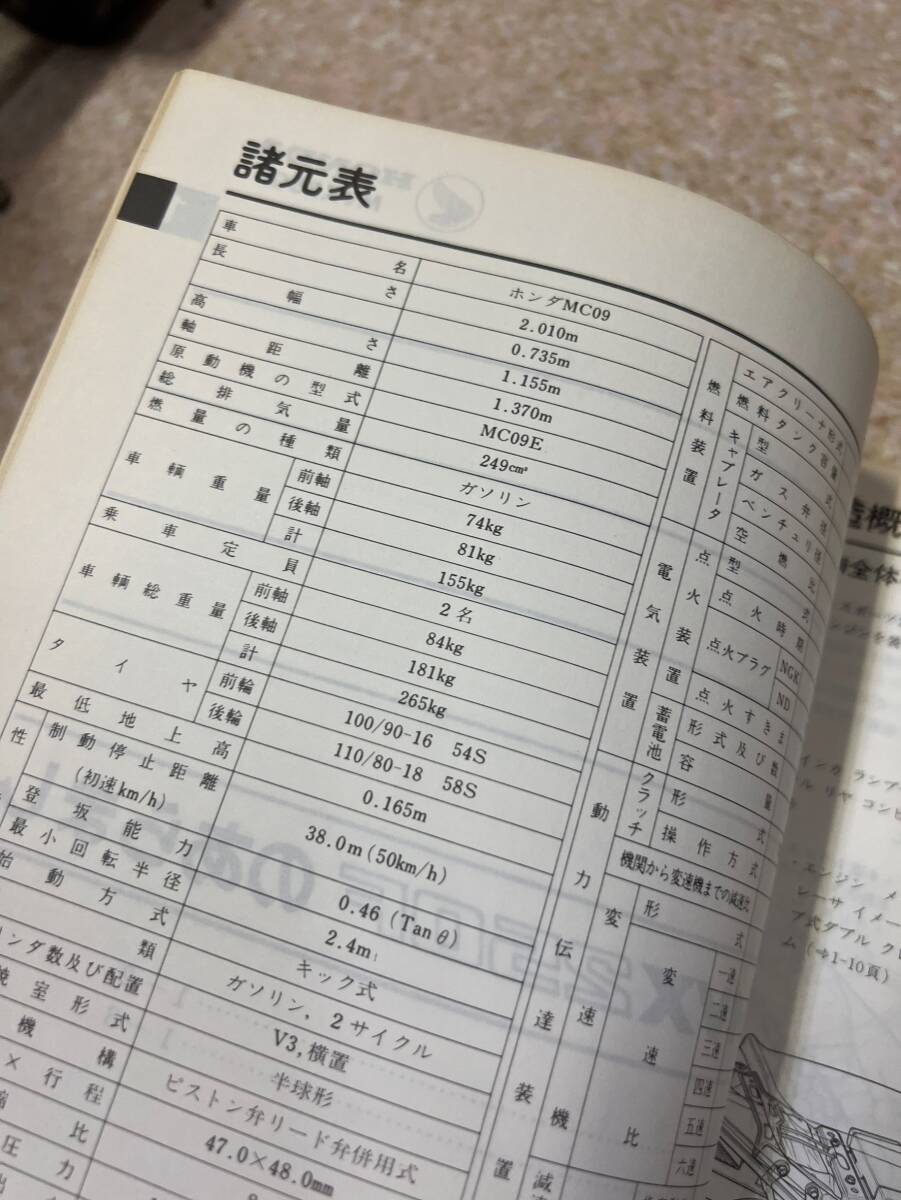 諸元表
車名 ホンダMC09
長さ 2.010m
幅 0.735m
高さ 1.155m
軸距離 1.370m
原動機の型式 MC09E
総排気量 249cm³
燃量の種類 ガソリン
車輌重量 前軸 74kg
後軸 81kg
計 155kg
乗車定員 2名
車輌総重量 前軸 84kg
後軸 181kg
計 265kg
タイヤ 前輪 100/90-16 54S
後輪 110/80-18 58S
最低地上高 0.165m
性 制動停止距離 (初速km/h) 38.0m(50km/h)
登坂能力 0.46(Tanθ)
最小回転半径 2.4m
始動方式 キック式
類 ガソリン,2サイクル
リンダ数及び配置 V3,横置
焼室形式 半球形
機構 ピストン弁リード弁併用式
×行程 47.0×48.0mm
縮比
圧力
燃料装置
エアクリーナ形式
燃料タンク容量
キャブレータ
型式
ガス弁径
ベンチュリ径
空燃比
電気装置
点火装置
型式
点火時期
点火プラグ
NGK
ND
点火すきま
蓄電池
形式及び数
容量
動力伝達装置
クラッチ
形式
操作方式
機関から変速機までの減速比
変速機
形式
変速比
一速
二速
三速
四速
五速
六速
減
造概
全体
スポ
ンジンを
インカ ランプ
ル リヤ コンビ
エンジン メ
レーサイメー
ア式ダブル クレ
ム(⇨1-10頁)